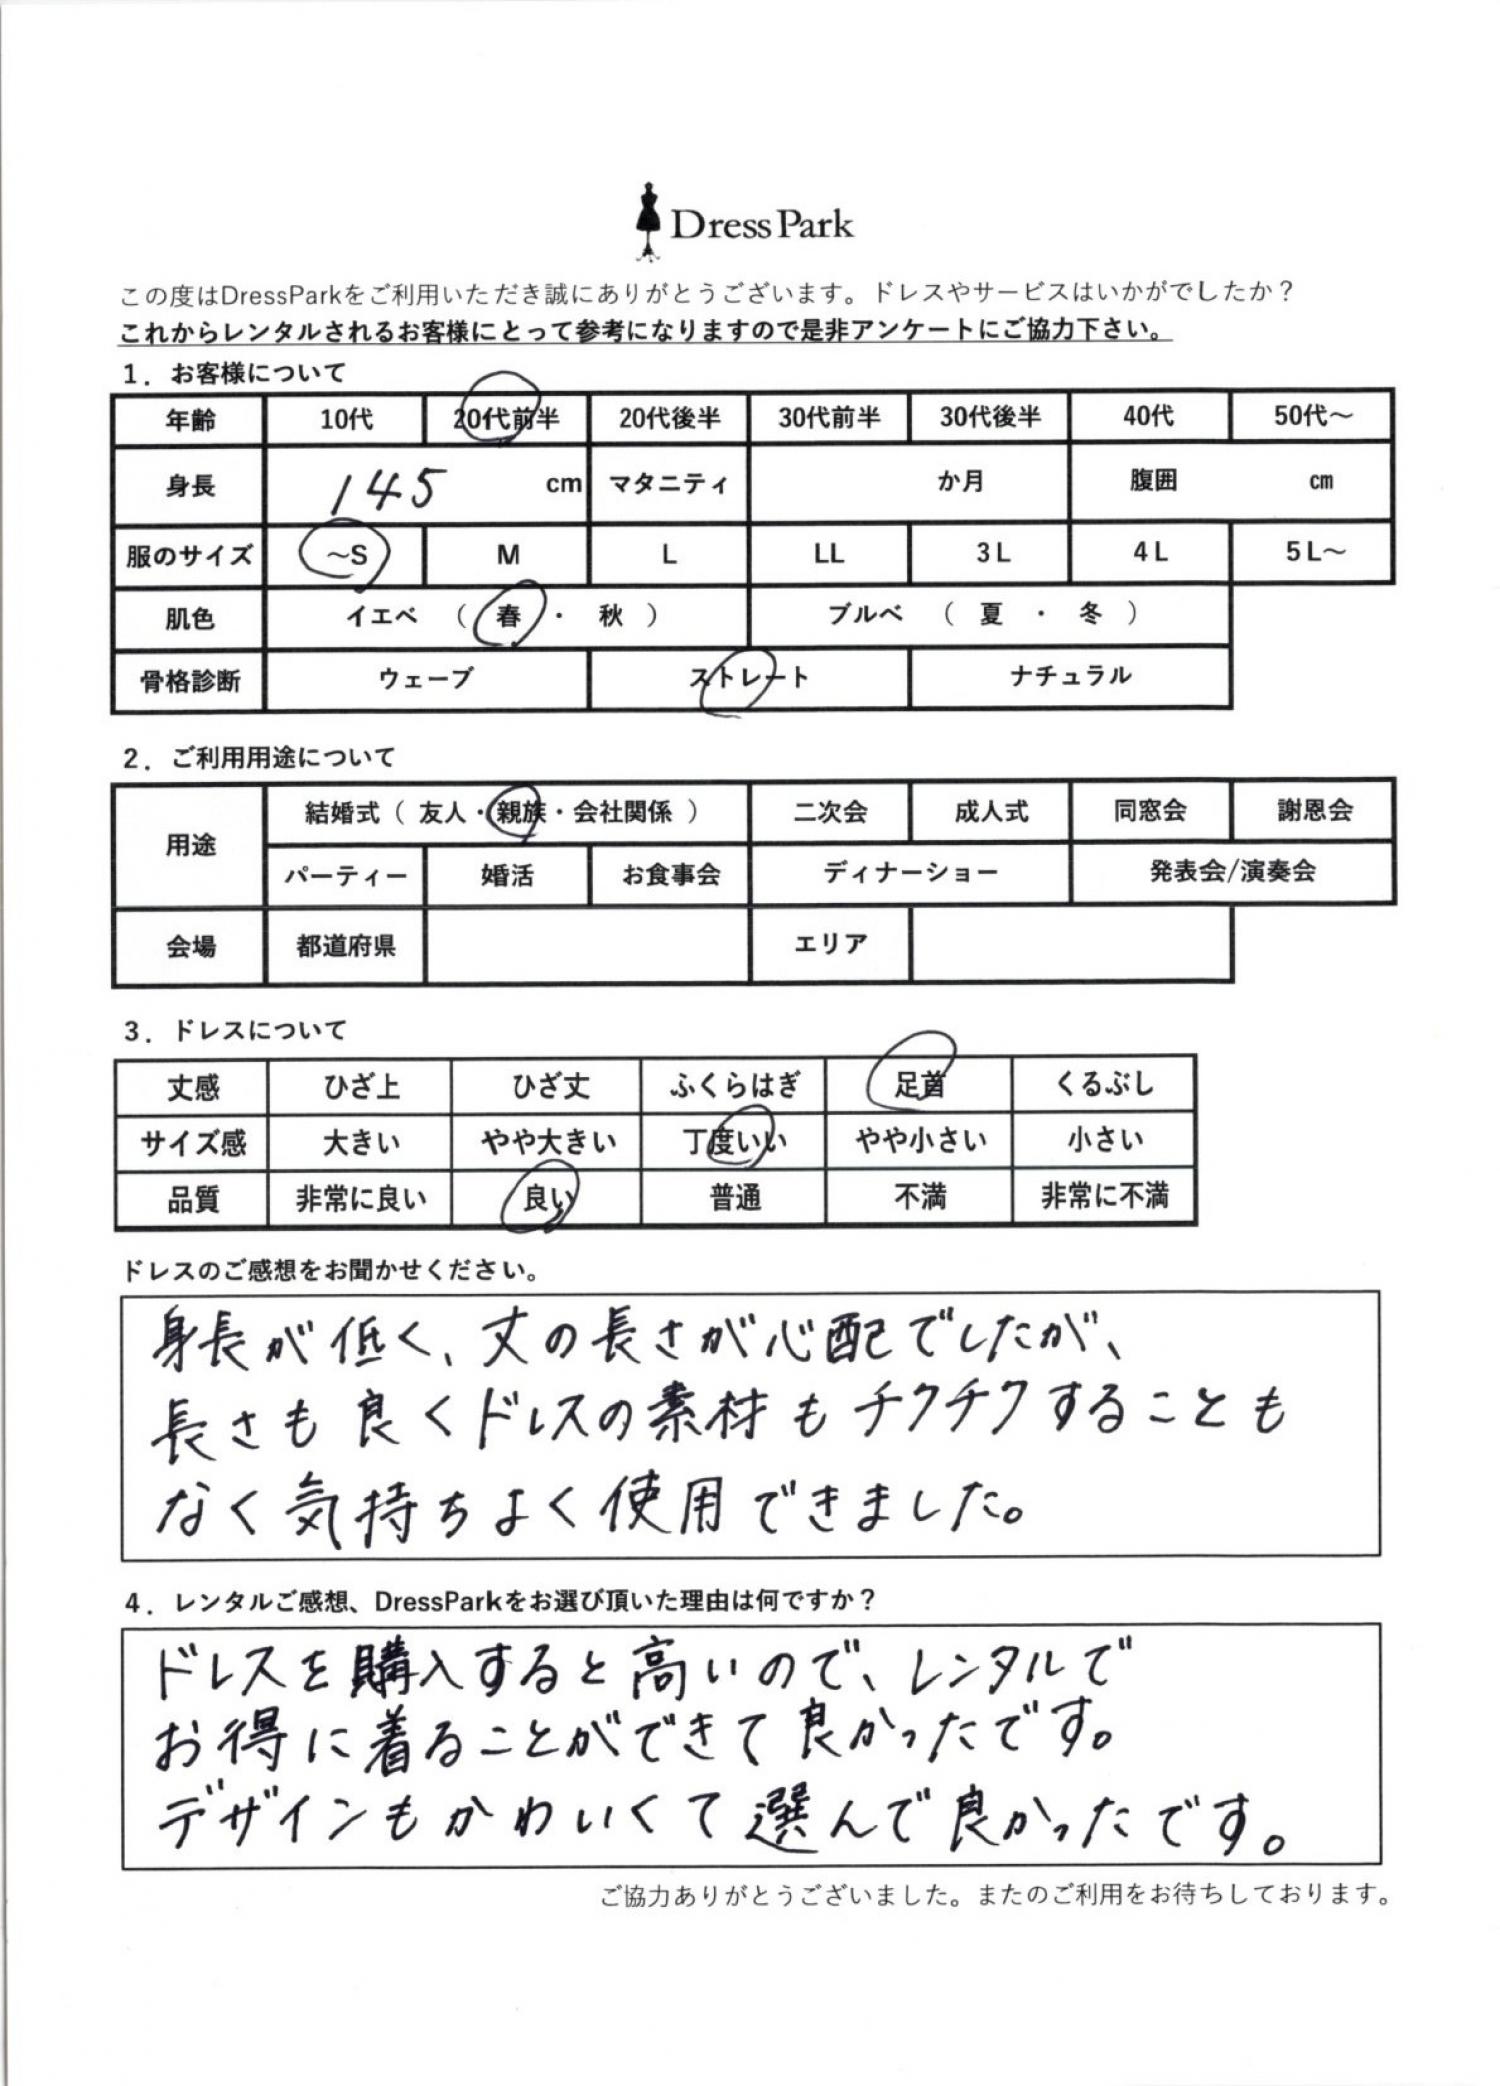 Dress Park
この度はDressParkをご利用いただき誠にありがとうございます。ドレスやサービスはいかがでしたか？
これからレンタルされるお客様にとって参考になりますので是非アンケートにご協力下さい。
1．お客様について
年齢 10代 20代前半 20代後半 30代前半 30代後半 40代 50代～
身長 145 cm マタニティ か月 腹囲 cm
服のサイズ ～S M L LL 3L 4L 5L～
肌色 イエベ （ 春 ・ 秋 ） ブルベ （ 夏 ・ 冬 ）
骨格診断 ウェーブ ストレート ナチュラル
2．ご利用用途について
用途 結婚式（ 友人・親族・会社関係 ） 二次会 成人式 同窓会 謝恩会
パーティー 婚活 お食事会 ディナーショー 発表会/演奏会
会場 都道府県 エリア
3．ドレスについて
丈感 ひざ上 ひざ丈 ふくらはぎ 足首 くるぶし
サイズ感 大きい やや大きい 丁度いい やや小さい 小さい
品質 非常に良い 良い 普通 不満 非常に不満
ドレスのご感想をお聞かせください。
身長が低く、丈の長さが心配でしたが、
長さも良くドレスの素材もチクチクすることも
なく気持ちよく使用できました。
4．レンタルご感想、DressParkをお選び頂いた理由は何ですか？
ドレスを購入すると高いので、レンタルで
お得に着ることができて良かったです。
デザインもかわいくて選んで良かったです。
ご協力ありがとうございました。またのご利用をお待ちしております。